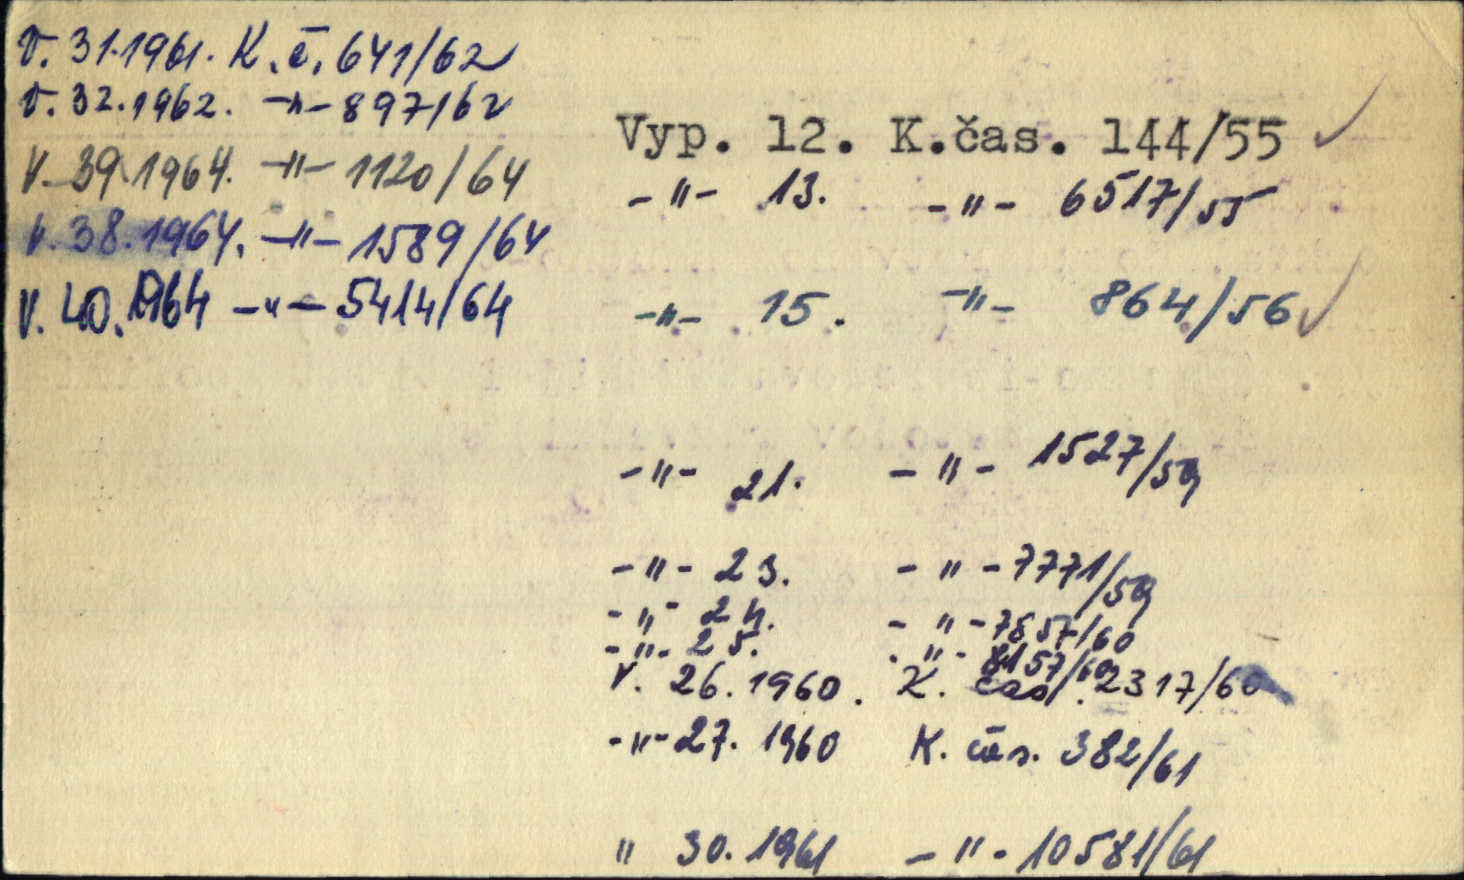 V. 31.1961. K.č. 641/62
V. 32.1962. -"- 897/62
V. 39.1964. -"- 1120/64
V. 38.1964. -"- 1589/64
V. 40.1964 -"- 5414/64
Vyp. 12. K.čas. 144/55
-"- 13. -"- 6517/55
-"- 15. -"- 864/56
-"- 21. -"- 1527/59
-"- 23. -"- 7771/59
-"- 24. -"- 7857/60
-"- 25. -"- 8157/60
V. 26.1960. K. čas. 2317/60
-"- 27. 1960 K. čas. 382/61
" 30.1961 -"- 10581/61